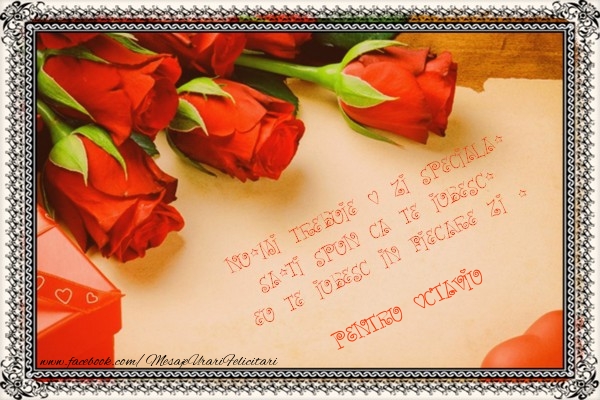 NU*IMI TREBUIE O ZI SPECIALA*
SA*TI SPUN CA TE IUBESC*
EU TE IUBESC IN FIECARE ZI *
PENTRU OCTAVIU
www.facebook.com/MesajeUrariFelicitari